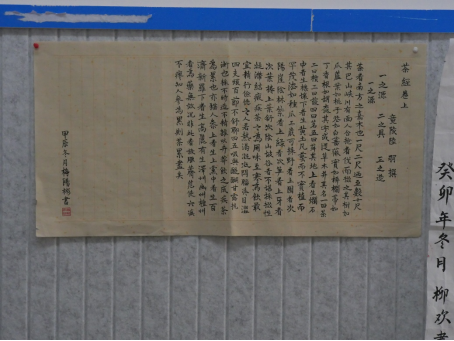 茶經卷上
竟陵陸羽撰
一之源 二之具 三之造
一之源
茶者南方之嘉木也一尺二尺迺至數十尺
其巴山峽川有兩人合抱者伐而掇之其樹如
瓜蘆葉如梔子花如白薔薇實如栟櫚蒂如
丁香根如胡桃其字或從草或木其名一曰茶
二曰檟三曰蔎四曰茗五曰荈其地上者生爛石
中者生櫟壤下者生黃土凡藝而不實植而
罕茂法如種瓜三歲可採野者上園者次
陽崖陰林紫者上綠者次筍者上牙者
次葉卷上葉舒次陰山坡谷者不堪採掇性
凝滯結瘕疾茶之為用味至寒為飲最
宜精行儉德之人若熱渴凝悶腦疼目澀
四支煩百節不舒聊四五啜與醍醐甘露抗
衡也採不時造不精雜以卉莽飲之成疾茶
為累也亦猶人參上者生上黨中者生百
濟新羅下者生高麗有生澤州幽州檀州
者為藥無效況非此者設服薺苨使六疾
不瘳知人參為累則茶累盡矣
冬月書
癸卯年冬月 柳欢書